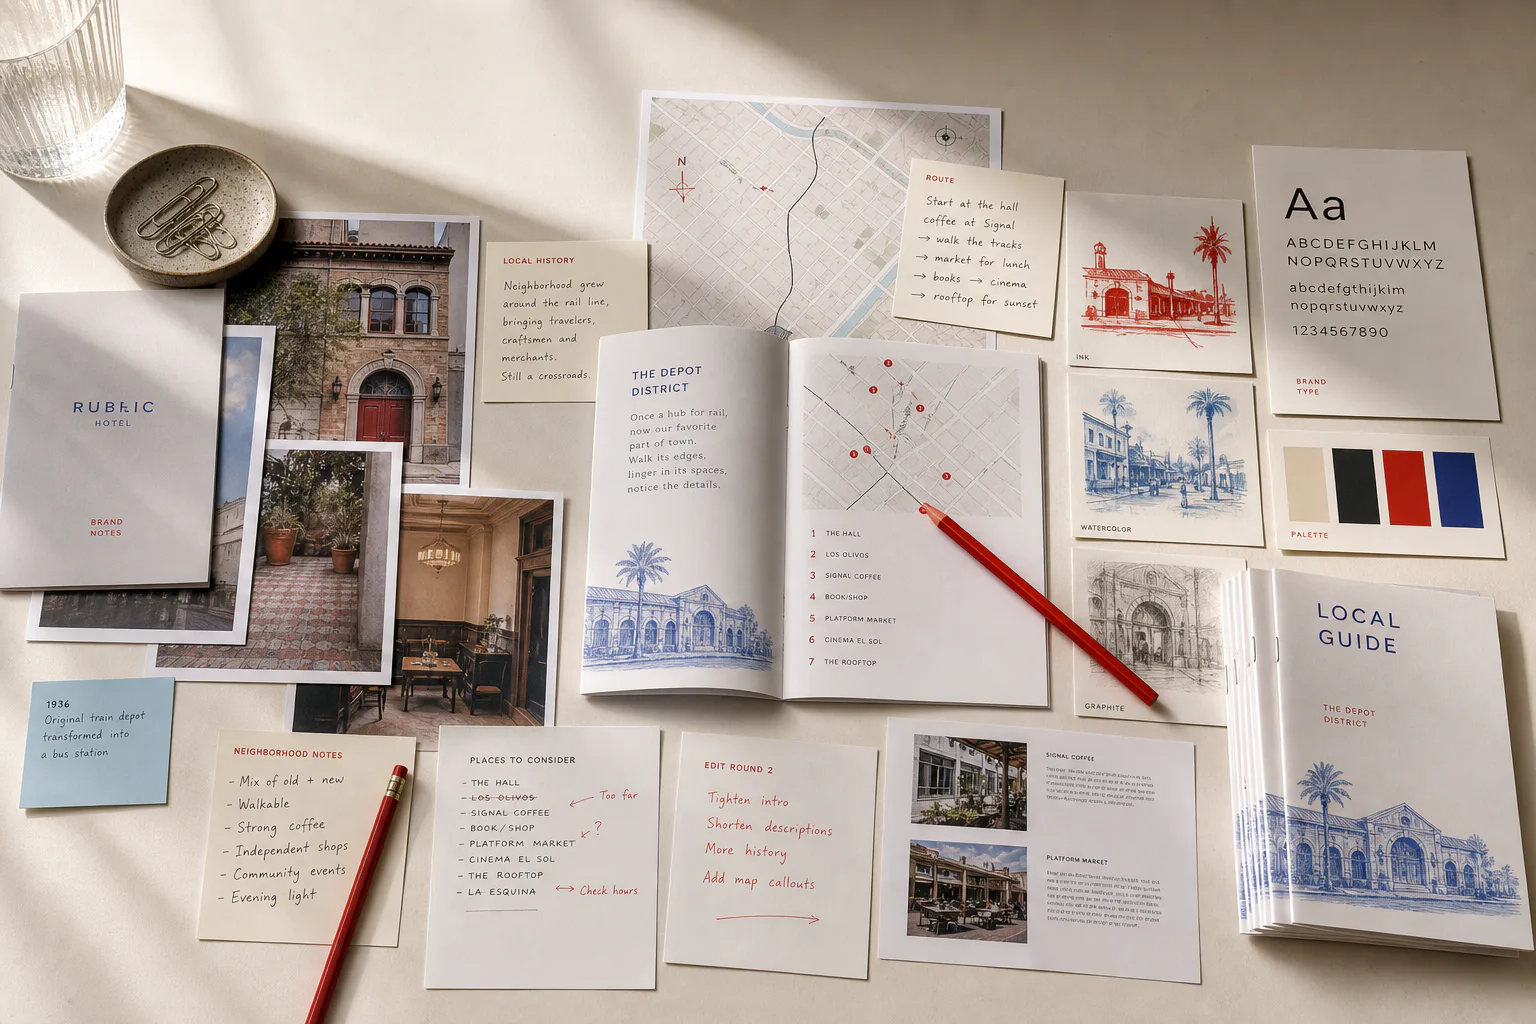 RUBRIC
HOTEL
BRAND
NOTES
1936
Original train depot
transformed into
a bus station
LOCAL HISTORY
Neighborhood grew
around the rail line,
bringing travelers,
craftsmen and
merchants.
Still a crossroads.
N
ROUTE
Start at the hall
coffee at Signal
→ walk the tracks
→ market for lunch
→ books → cinema
→ rooftop for sunset
THE DEPOT
DISTRICT
Once a hub for rail,
now our favorite
part of town.
Walk its edges,
linger in its spaces,
notice the details.
1 THE HALL
2 LOS OLIVOS
3 SIGNAL COFFEE
4 BOOK/SHOP
5 PLATFORM MARKET
6 CINEMA EL SOL
7 THE ROOFTOP
INK
WATERCOLOR
GRAPHITE
Aa
ABCDEFGHIJKLM
NOPQRSTUVWXYZ
abcdefgthijklm
nopqrstuvwxyz
1234567890
BRAND
TYPE
PALETTE
NEIGHBORHOOD NOTES
– Mix of old + new
– Walkable
– Strong coffee
– Independent shops
– Community events
– Evening light
PLACES TO CONSIDER
– THE HALL
– LOS OLIVOS
– SIGNAL COFFEE
– BOOK/SHOP
– PLATFORM MARKET
– CINEMA EL SOL
– THE ROOFTOP
– LA ESQUINA
Too far
?
Check hours
EDIT ROUND 2
Tighten intro
Shorten descriptions
More history
Add map callouts
SIGNAL COFFEE
PLATFORM MARKET
LOCAL
GUIDE
THE DEPOT
DISTRICT